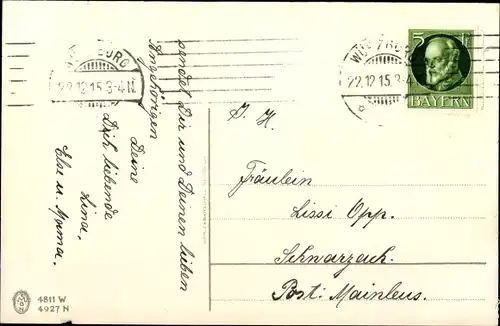 WÜRZBURG
22.12.15.3-4N.
WÜRZBURG
22.12.15.3-4
5
BAYERN
sendet Dir und Deinen lieben
Angehörigen
Deine
Dich liebende
Lina,
Else u. Mama.
Fräulein
Lissi Opp.
Schwarzach.
Post: Mainleus.
4811 W
4927 N